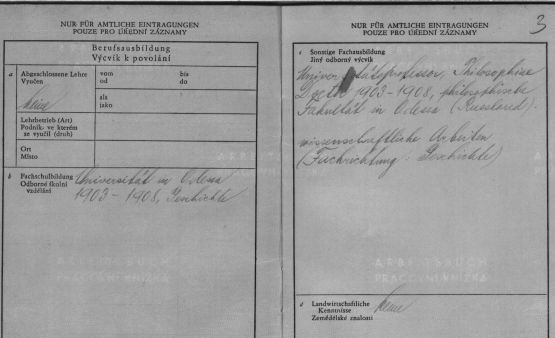 NUR FÜR AMTLICHE EINTRAGUNGEN
POUZE PRO ÚŘEDNÍ ZÁZNAMY
Berufsausbildung
Výcvik k povolání
a Abgeschlossene Lehre
Vyučen
keine
vom
od
bis
do
als
jako
Lehrbetrieb (Art)
Podnik, ve kterém
se vyučil (druh)
Ort
Místo
b Fachschulbildung
Odborné školní
vzdělání
Universität in Odessa
1903-1908, Geschichte
ARBEITSBUCH
PRACOVNÍ KNÍŽKA
3
NUR FÜR AMTLICHE EINTRAGUNGEN
POUZE PRO ÚŘEDNÍ ZÁZNAMY
c Sonstige Fachausbildung
Jiný odborný výcvik
Universitätsprofessor, Philosophie
1903-1908, philosophische
Fakultät in Odessa (Russland).
wissenschaftliche Arbeiten
(Fachrichtung: Geschichte)
ARBEITSBUCH
PRACOVNÍ KNÍŽKA
d Landwirtschaftliche
Kenntnisse
Zemědělské znalosti
keine